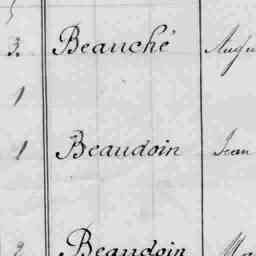 3. Beauché
1
1 Beaudoin Jean
Beaudoin